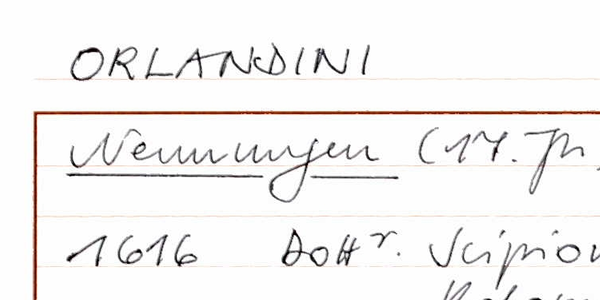 ORLANDINI
Nennungen (17. Jh.
1616 Dottr. Scipion